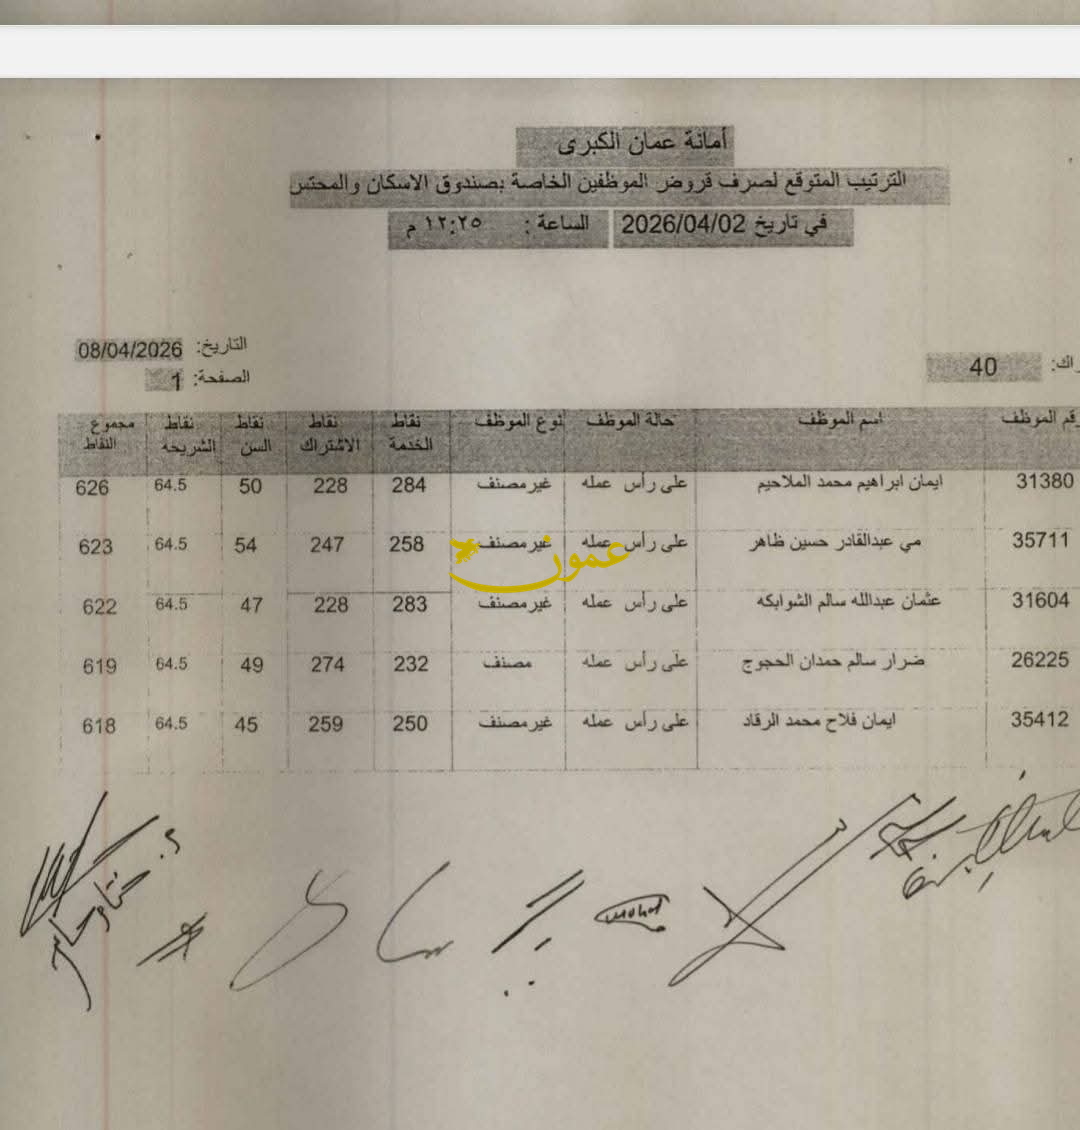 أمانة عمان الكبرى
الترتيب المتوقع لصرف قروض الموظفين الخاصة بصندوق الاسكان والمحتس
في تاريخ 2026/04/02 الساعة : ١٢:٢٥ م
التاريخ: 08/04/2026
راك: 40
الصفحة: 1
رقم الموظف اسم الموظف حالة الموظف نوع الموظف نقاط الخدمة نقاط الاشتراك نقاط السن نقاط الشريحه مجموع النقاط
31380 ايمان ابراهيم محمد الملاحيم على رأس عمله غير مصنف 284 228 50 64.5 626
35711 مي عبدالقادر حسين ظاهر على رأس عمله غير مصنف 258 247 54 64.5 623
عمون
31604 عثمان عبدالله سالم الشوابكه على رأس عمله غير مصنف 283 228 47 64.5 622
26225 ضرار سالم حمدان الحجوج على رأس عمله مصنف 232 274 49 64.5 619
35412 ايمان فلاح محمد الرقاد على رأس عمله غير مصنف 250 259 45 64.5 618